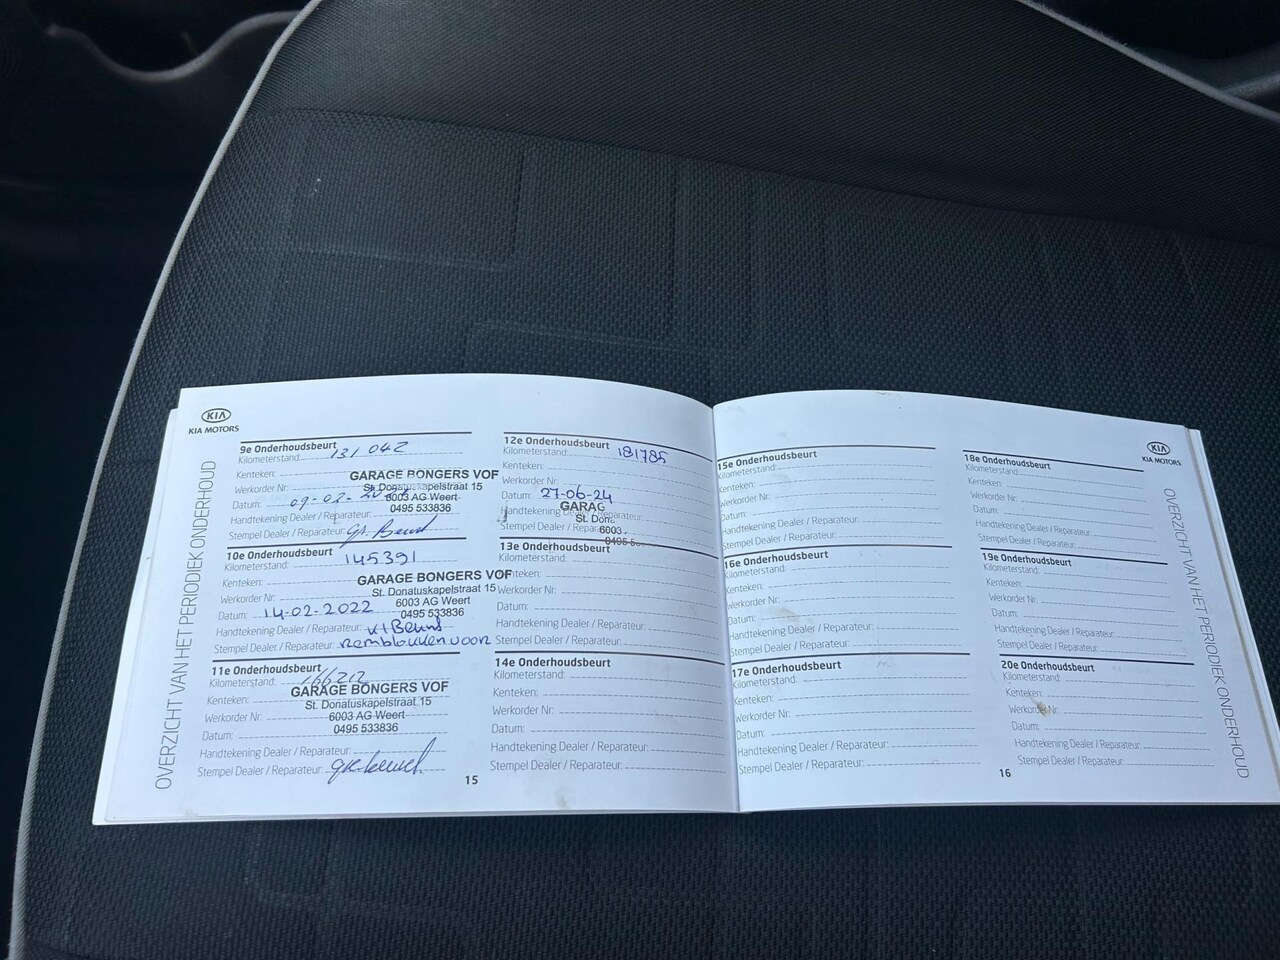 KIA
KIA MOTORS
OVERZICHT VAN HET PERIODIEK ONDERHOUD
9e Onderhoudsbeurt
Kilometerstand: 131 042
Kenteken:
GARAGE BONGERS VOF
Werkorder Nr:
St. Donatuskapelstraat 15
Datum: 09-02-
6003 AG Weert
0495 533836
Handtekening Dealer / Reparateur:
Stempel Dealer / Reparateur:
10e Onderhoudsbeurt
Kilometerstand: 145391
Kenteken:
GARAGE BONGERS VOF
Werkorder Nr:
St. Donatuskapelstraat 15
6003 AG Weert
Datum: 14-02-2022
0495 533836
Handtekening Dealer / Reparateur: kl Beurt
Stempel Dealer / Reparateur: remblokken voor
11e Onderhoudsbeurt
Kilometerstand: 166212
Kenteken:
GARAGE BONGERS VOF
St. Donatuskapelstraat 15
Werkorder Nr:
6003 AG Weert
Datum:
0495 533836
Handtekening Dealer / Reparateur:
Stempel Dealer / Reparateur:
15
12e Onderhoudsbeurt
Kilometerstand: 181785
Kenteken:
Werkorder Nr:
Datum: 27-06-24
GARAG
Handtekening Dealer / Reparateur:
St. Don
Stempel Dealer / Reparateur:
6003
0495 5
13e Onderhoudsbeurt
Kilometerstand:
Kenteken:
Werkorder Nr:
Datum:
Handtekening Dealer / Reparateur:
Stempel Dealer / Reparateur:
14e Onderhoudsbeurt
Kilometerstand:
Kenteken:
Werkorder Nr:
Datum:
Handtekening Dealer / Reparateur:
Stempel Dealer / Reparateur:
15e Onderhoudsbeurt
Kilometerstand:
Kenteken:
Werkorder Nr:
Datum:
Handtekening Dealer / Reparateur:
Stempel Dealer / Reparateur:
16e Onderhoudsbeurt
Kilometerstand:
Kenteken:
Werkorder Nr:
Datum:
Handtekening Dealer / Reparateur:
Stempel Dealer / Reparateur:
17e Onderhoudsbeurt
Kilometerstand:
Kenteken:
Werkorder Nr:
Datum:
Handtekening Dealer / Reparateur:
Stempel Dealer / Reparateur:
18e Onderhoudsbeurt
Kilometerstand:
Kenteken:
Werkorder Nr:
Datum:
Handtekening Dealer / Reparateur:
Stempel Dealer / Reparateur:
19e Onderhoudsbeurt
Kilometerstand:
Kenteken:
Werkorder Nr:
Datum:
Handtekening Dealer / Reparateur:
Stempel Dealer / Reparateur:
20e Onderhoudsbeurt
Kilometerstand:
Kenteken:
Werkorder Nr:
Datum:
Handtekening Dealer / Reparateur:
Stempel Dealer / Reparateur:
16
KIA
KIA MOTORS
OVERZICHT VAN HET PERIODIEK ONDERHOUD